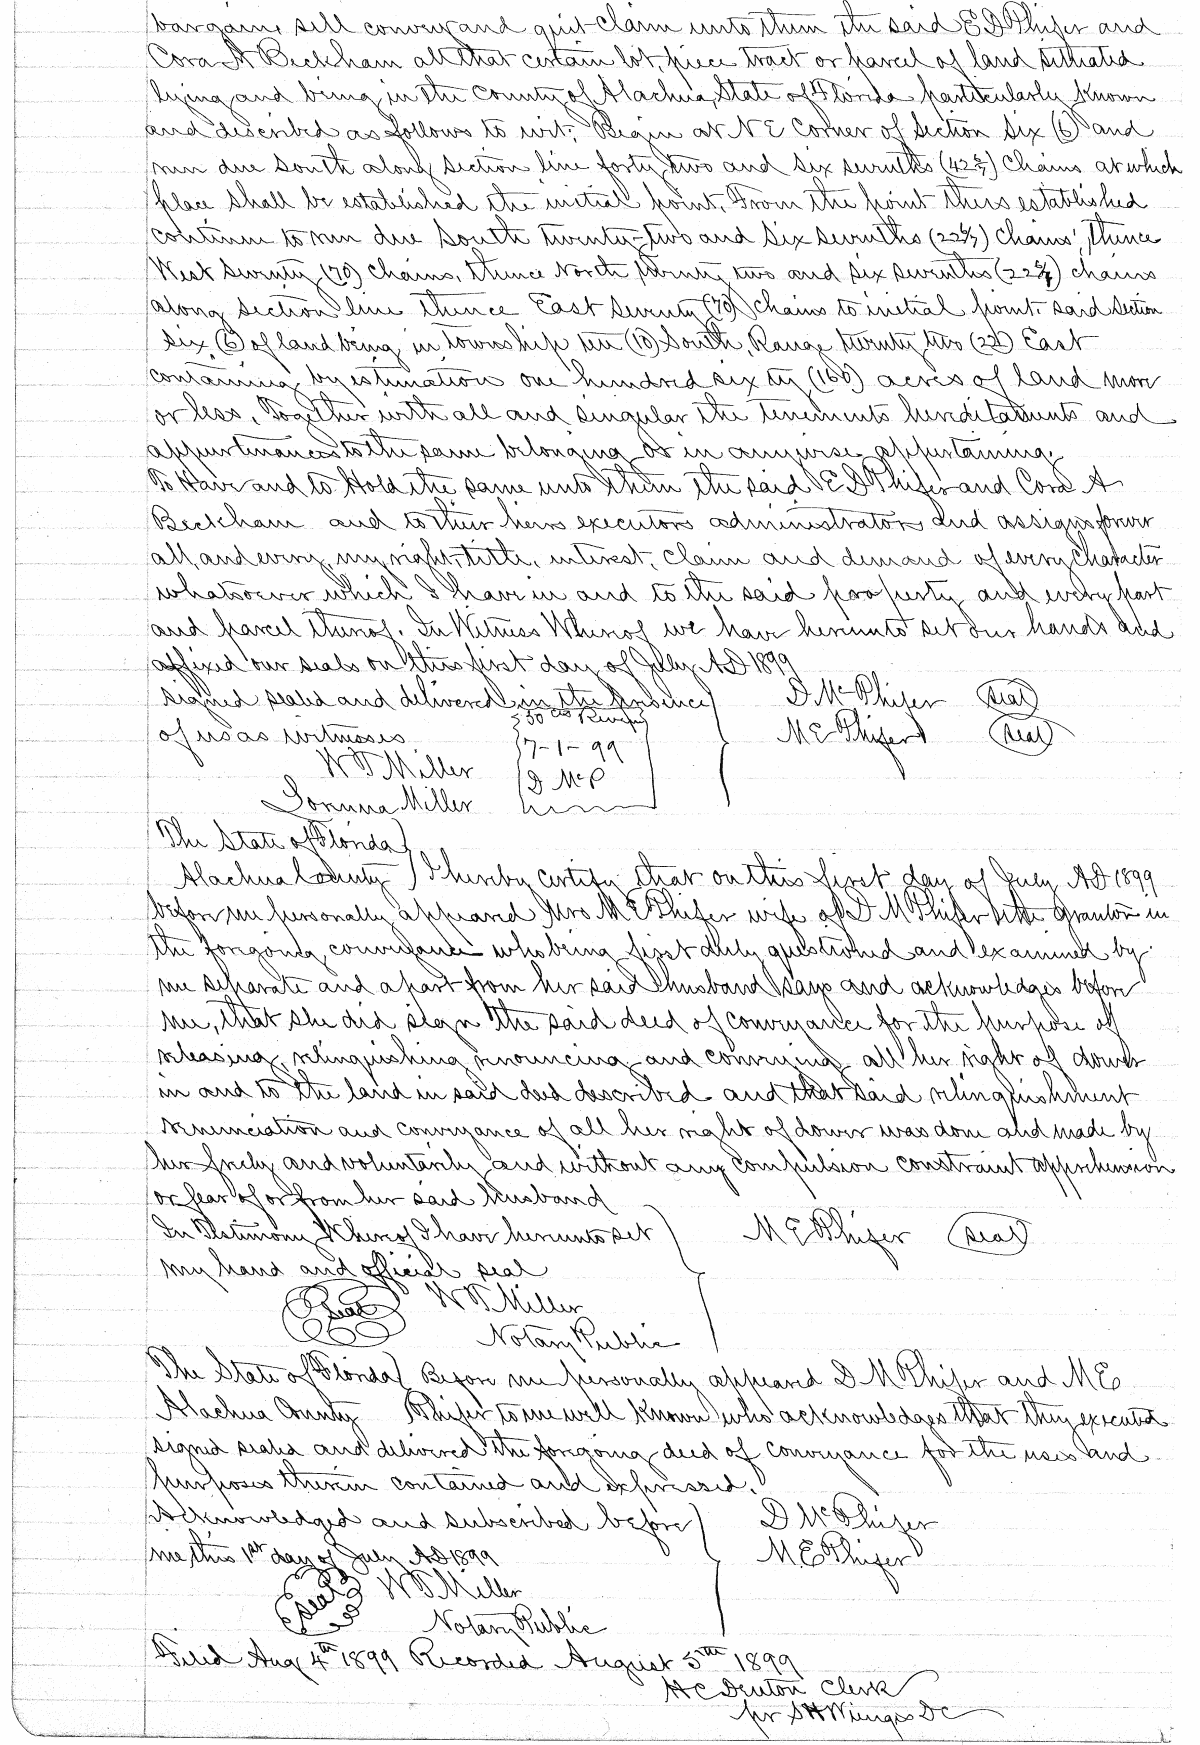 bargain, sell convey and quit-claim unto them the said E D Phifer and
Cora A Beckham all that certain lot, piece tract or parcel of land situated
lying and being in the County of Alachua, State of Florida particularly known
and described as follows to wit; Begin at N E Corner of Section Six (6) and
run due south along section line forty two and six sevenths (42 6/7) Chains at which
place shall be established the initial point. From the point thus established
continue to run due South twenty-two and six sevenths (22 6/7) chains, thence
West Seventy (70) chains, thence North twenty two and six sevenths (22 6/7) chains
along section line thence East Seventy (70) chains to initial point. said Section
six (6) of land being in township ten (10) South, Range twenty two (22) East
containing by estimation one hundred sixty (160) acres of land more
or less, Together with all and singular the tenements hereditaments and
appurtenances to the same belonging or in anywise appertaining.
To Have and to Hold the same unto them the said E D Phifer and Cora A
Beckham and to their heirs executors administrators and assigns forever
all, and every, my right, title, interest, claim and demand of every character
whatsoever which I have in and to the said property and every part
and parcel thereof. In Witness Whereof we have hereunto set our hands and
affixed our seals on this first day of July AD 1899
signed sealed and delivered in the presence) D Mc Phifer (seal)
50 cts Revenue
of us as witnesses 7-1-99 M E Phifer (seal)
W T Miller D McP
Miller
The State of Florida)
Alachua County ) I hereby certify that on this first day of July AD 1899
before me personally appeared Mrs M E Phifer wife of D M Phifer the Grantor in
the foregoing conveyance who being first duly questioned and examined by
me separate and apart from her said husband says and acknowledges before
me, that she did sign the said deed of conveyance for the purpose of
releasing, relinquishing, renouncing and conveying all her right of dower
in and to the land in said deed described and that said relinquishment
renunciation and conveyance of all her right of dower was done and made by
her freely and voluntarily and without any compulsion constraint apprehension
or fear of or from her said husband
In Testimony Whereof I have hereunto set ) M E Phifer (seal)
my hand and official seal
(Seal) W T Miller
Notary Public
The State of Florida) Before me personally appeared D M Phifer and M E
Alachua County Phifer to me well known who acknowledges that they executed
signed sealed and delivered the foregoing deed of conveyance for the uses and
purposes therein contained and expressed.
Acknowledged and subscribed before) D Mc Phifer
me this 1st day of July AD 1899 M E Phifer
(Seal) W T Miller
Notary Public
Filed Aug 4th 1899 Recorded August 5th 1899
H C Denton Clerk
per S H Wienges DC